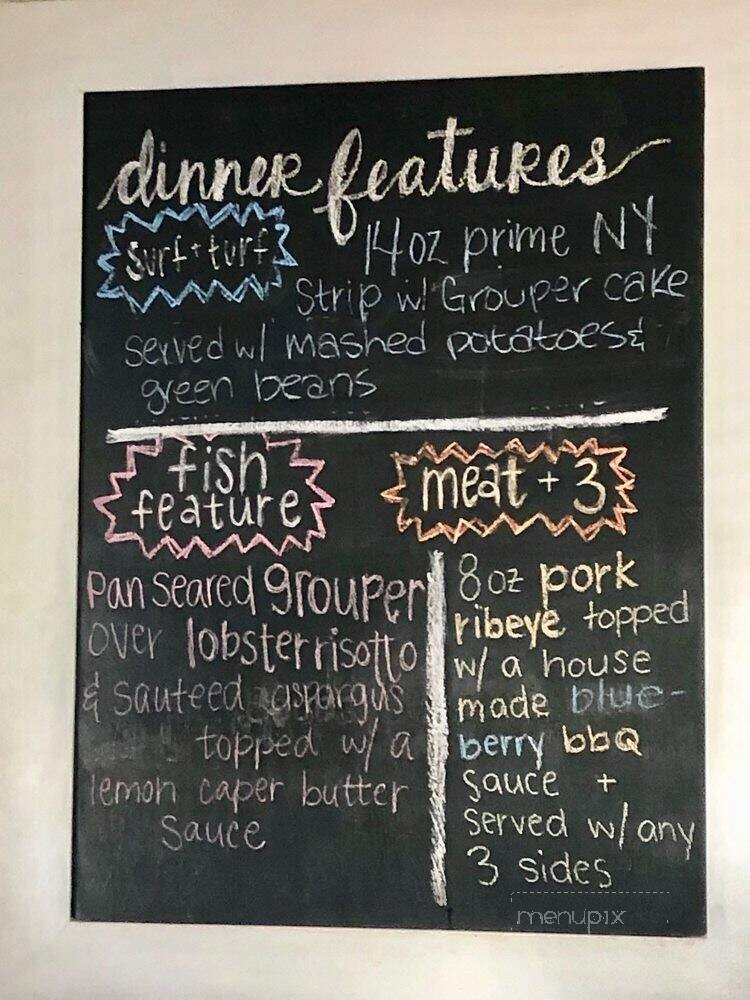 dinner features
surf + turf
14oz prime NY
Strip w/ Grouper cake
served w/ mashed potatoes &
green beans
fish
feature
pan seared grouper
over lobster risotto
& sauteed aspargus
topped w/ a
lemon caper butter
sauce
meat + 3
8oz pork
ribeye topped
w/ a house
made blue-
berry bbQ
sauce +
served w/ any
3 sides
menupix